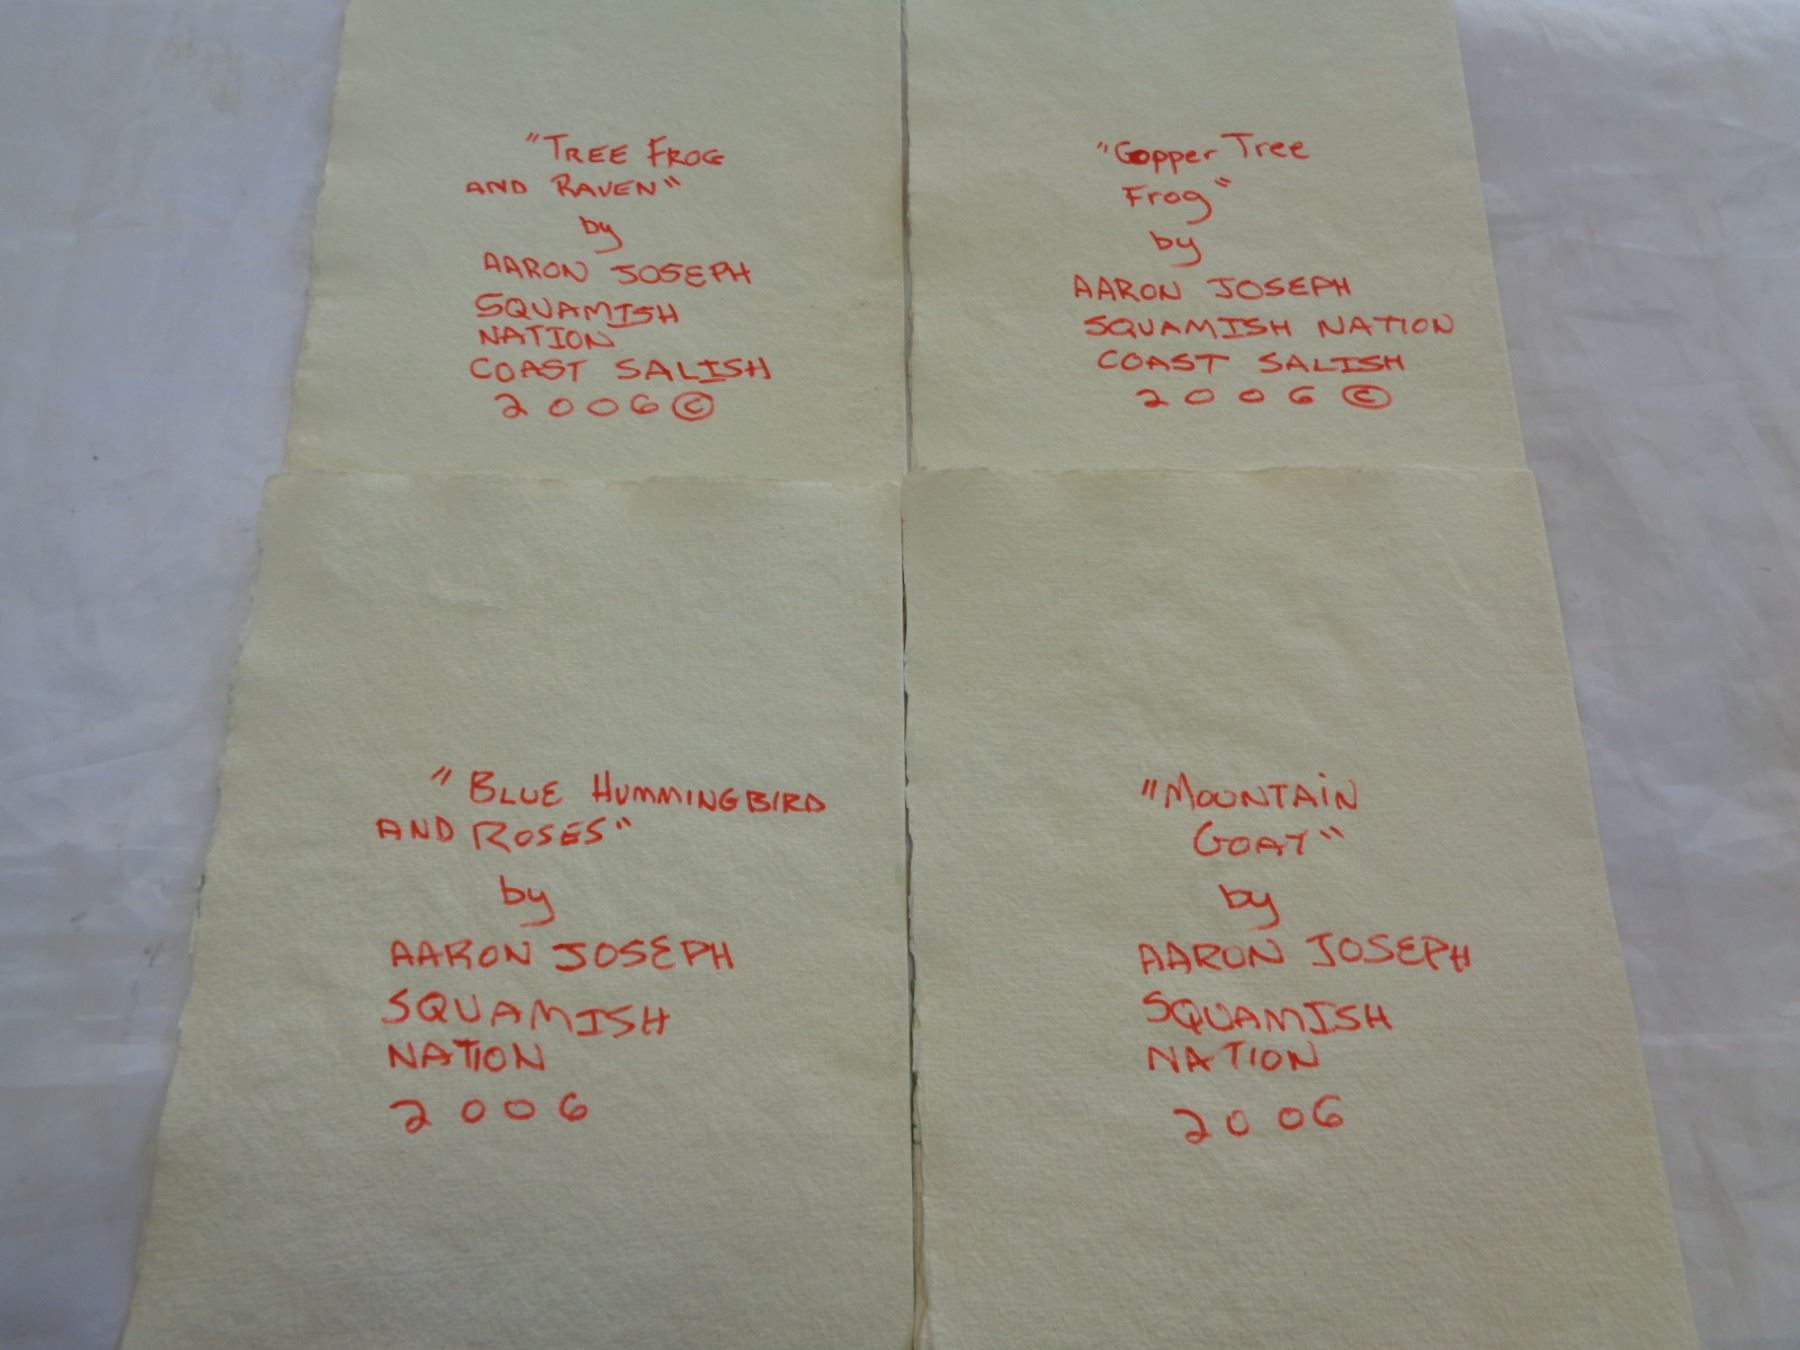 "TREE FROG
AND RAVEN"
by
AARON JOSEPH
SQUAMISH
NATION
COAST SALISH
2006 ©
"Copper Tree
Frog"
by
AARON JOSEPH
SQUAMISH NATION
COAST SALISH
2006 ©
"BLUE HUMMINGBIRD
AND ROSES"
by
AARON JOSEPH
SQUAMISH
NATION
2006
"MOUNTAiN
GOAT"
by
AARON JOSEPH
SQUAMISH
NATION
2006